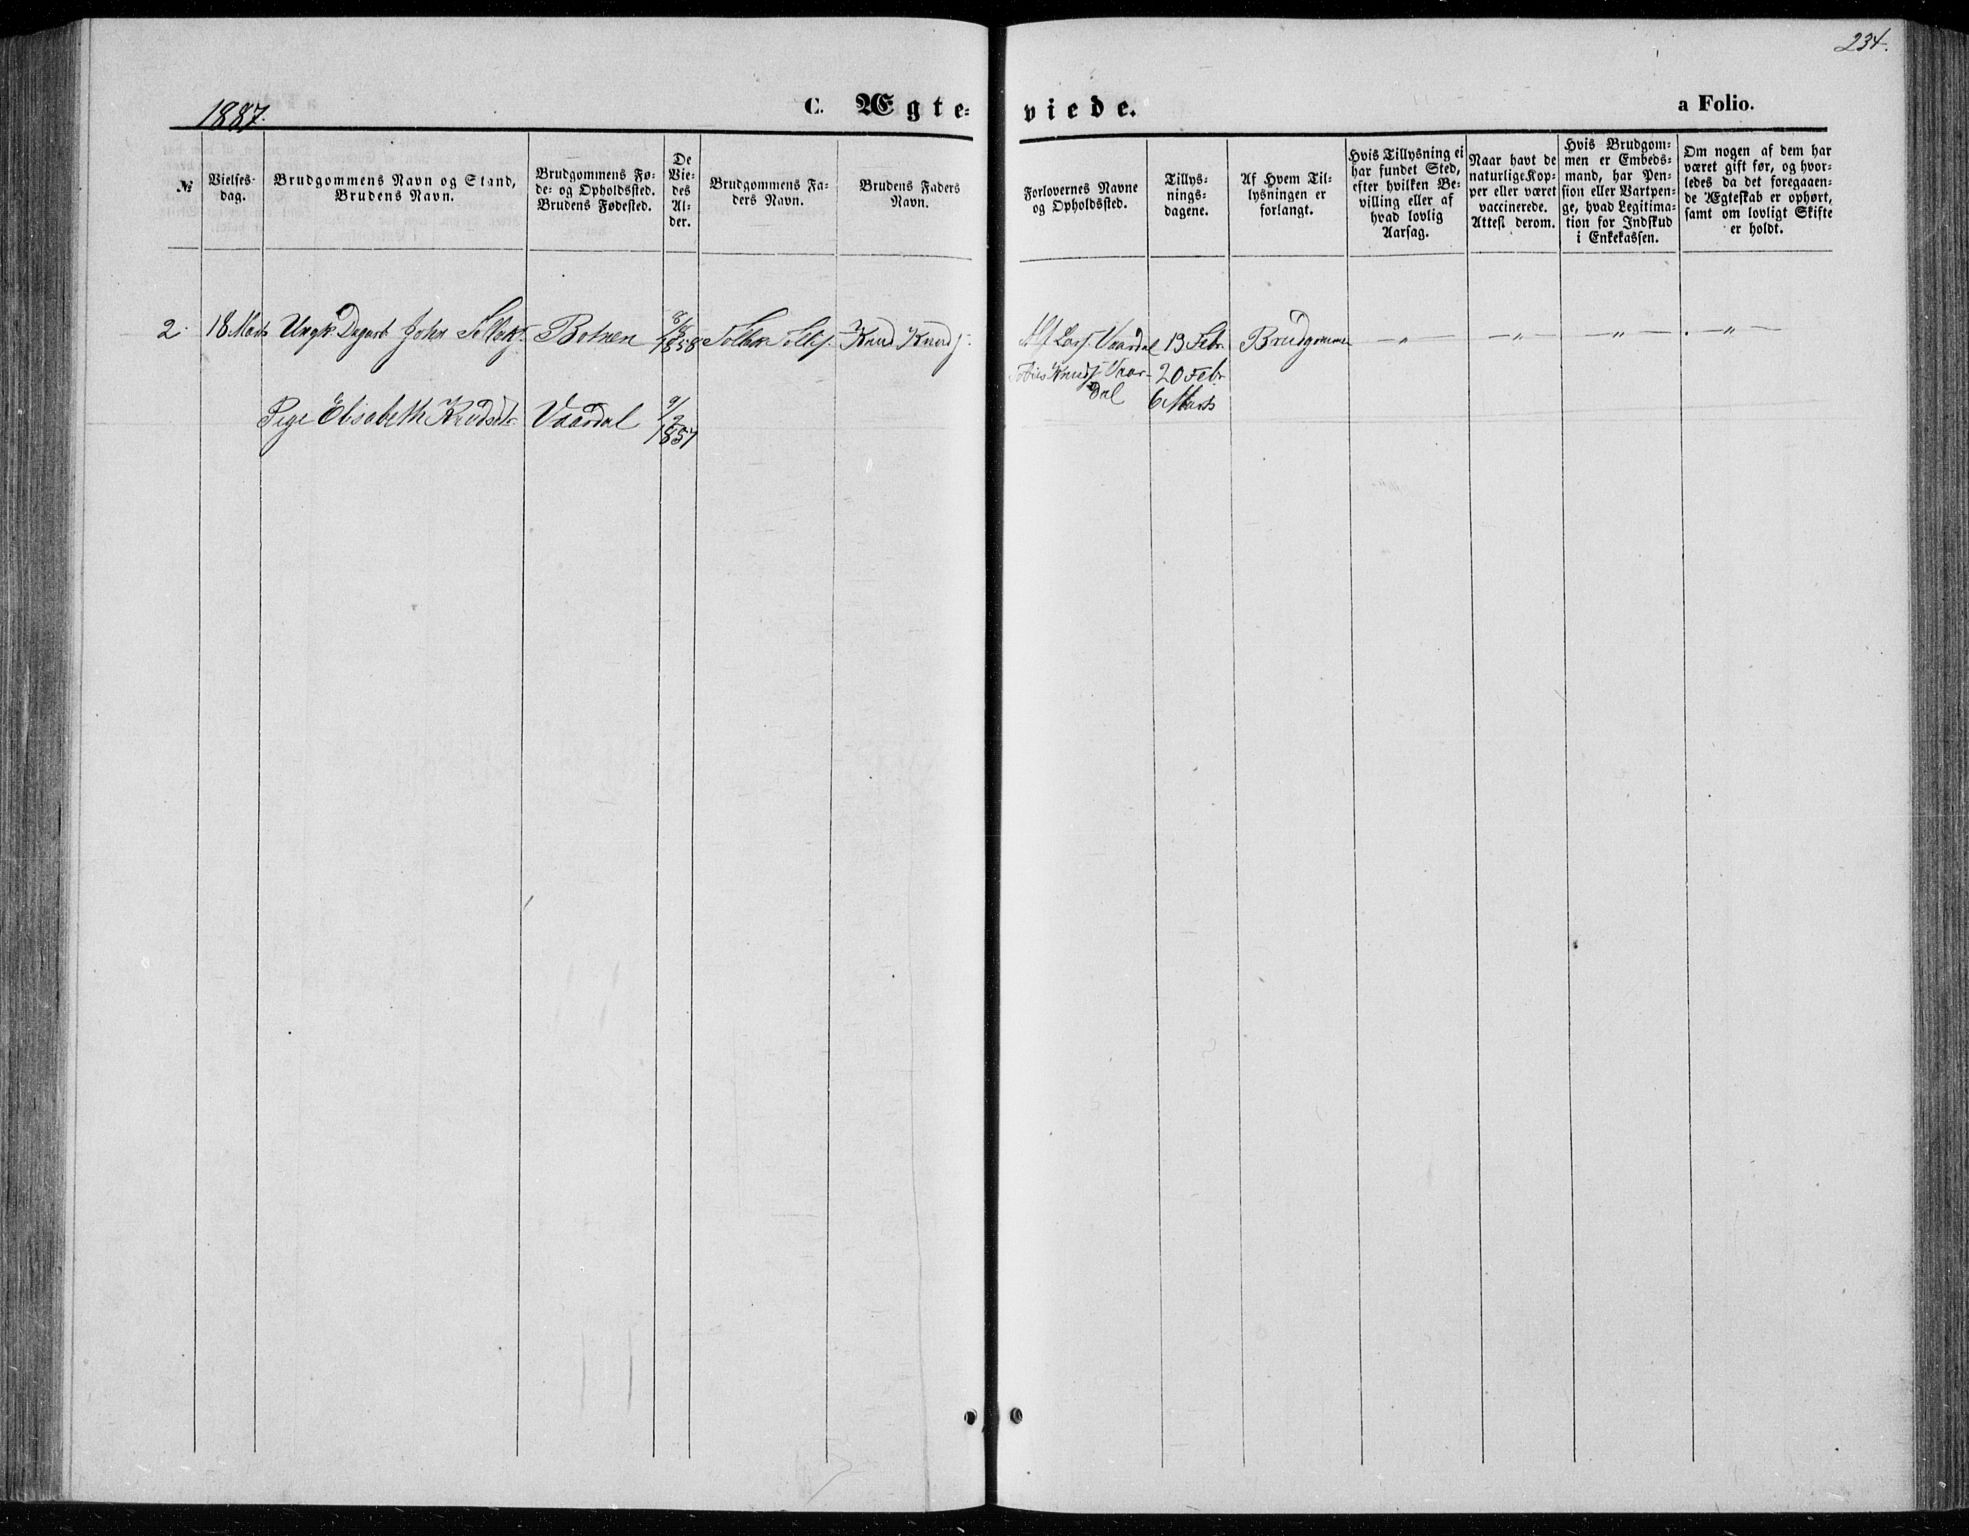 234.
1887.
C. Ægteviede.
a Folio.
№
Vielses-
dag.
Brudgommens Navn og Stand,
Brudens Navn.
Brudgommens Fø-
de- og Opholdssted.
Brudens Fødested.
De
Vie-
des
Al-
der.
Brudgommens Fa-
ders Navn.
Brudens Faders
Navn.
Forlovernes Navne
og Opholdssted.
Tillys-
nings-
dagene.
Af Hvem Til-
lysningen er
forlangt.
Hvis Tillysning ei
har fundet Sted,
efter hvilken Be-
villing eller af
hvad lovlig
Aarsag.
Naar havt de
naturlige Kop-
per eller været
vaccinerede.
Attest derom.
Hvis Brudgom-
men er Embeds-
mand, har Pen-
sion eller Vartpen-
ge, hvad Legitima-
tion for Indskud
i Enkekassen.
Om nogen af dem har
været gift før, og hvor-
ledes da det foregaaen-
de Ægteskab er ophørt,
samt om lovligt Skifte
er holdt.
2. 18 Marts Ungk. Dagarb John 1858 Knud Knuds. Lars. Vaardal 13 Febr. Brudgommen — „ — — „ — — „ — — „ —
Knuds. Vaar- 20 Febr
dal 6 Marts
Pige Elisabeth Knudsdtr. Vaardal 9/2 1857